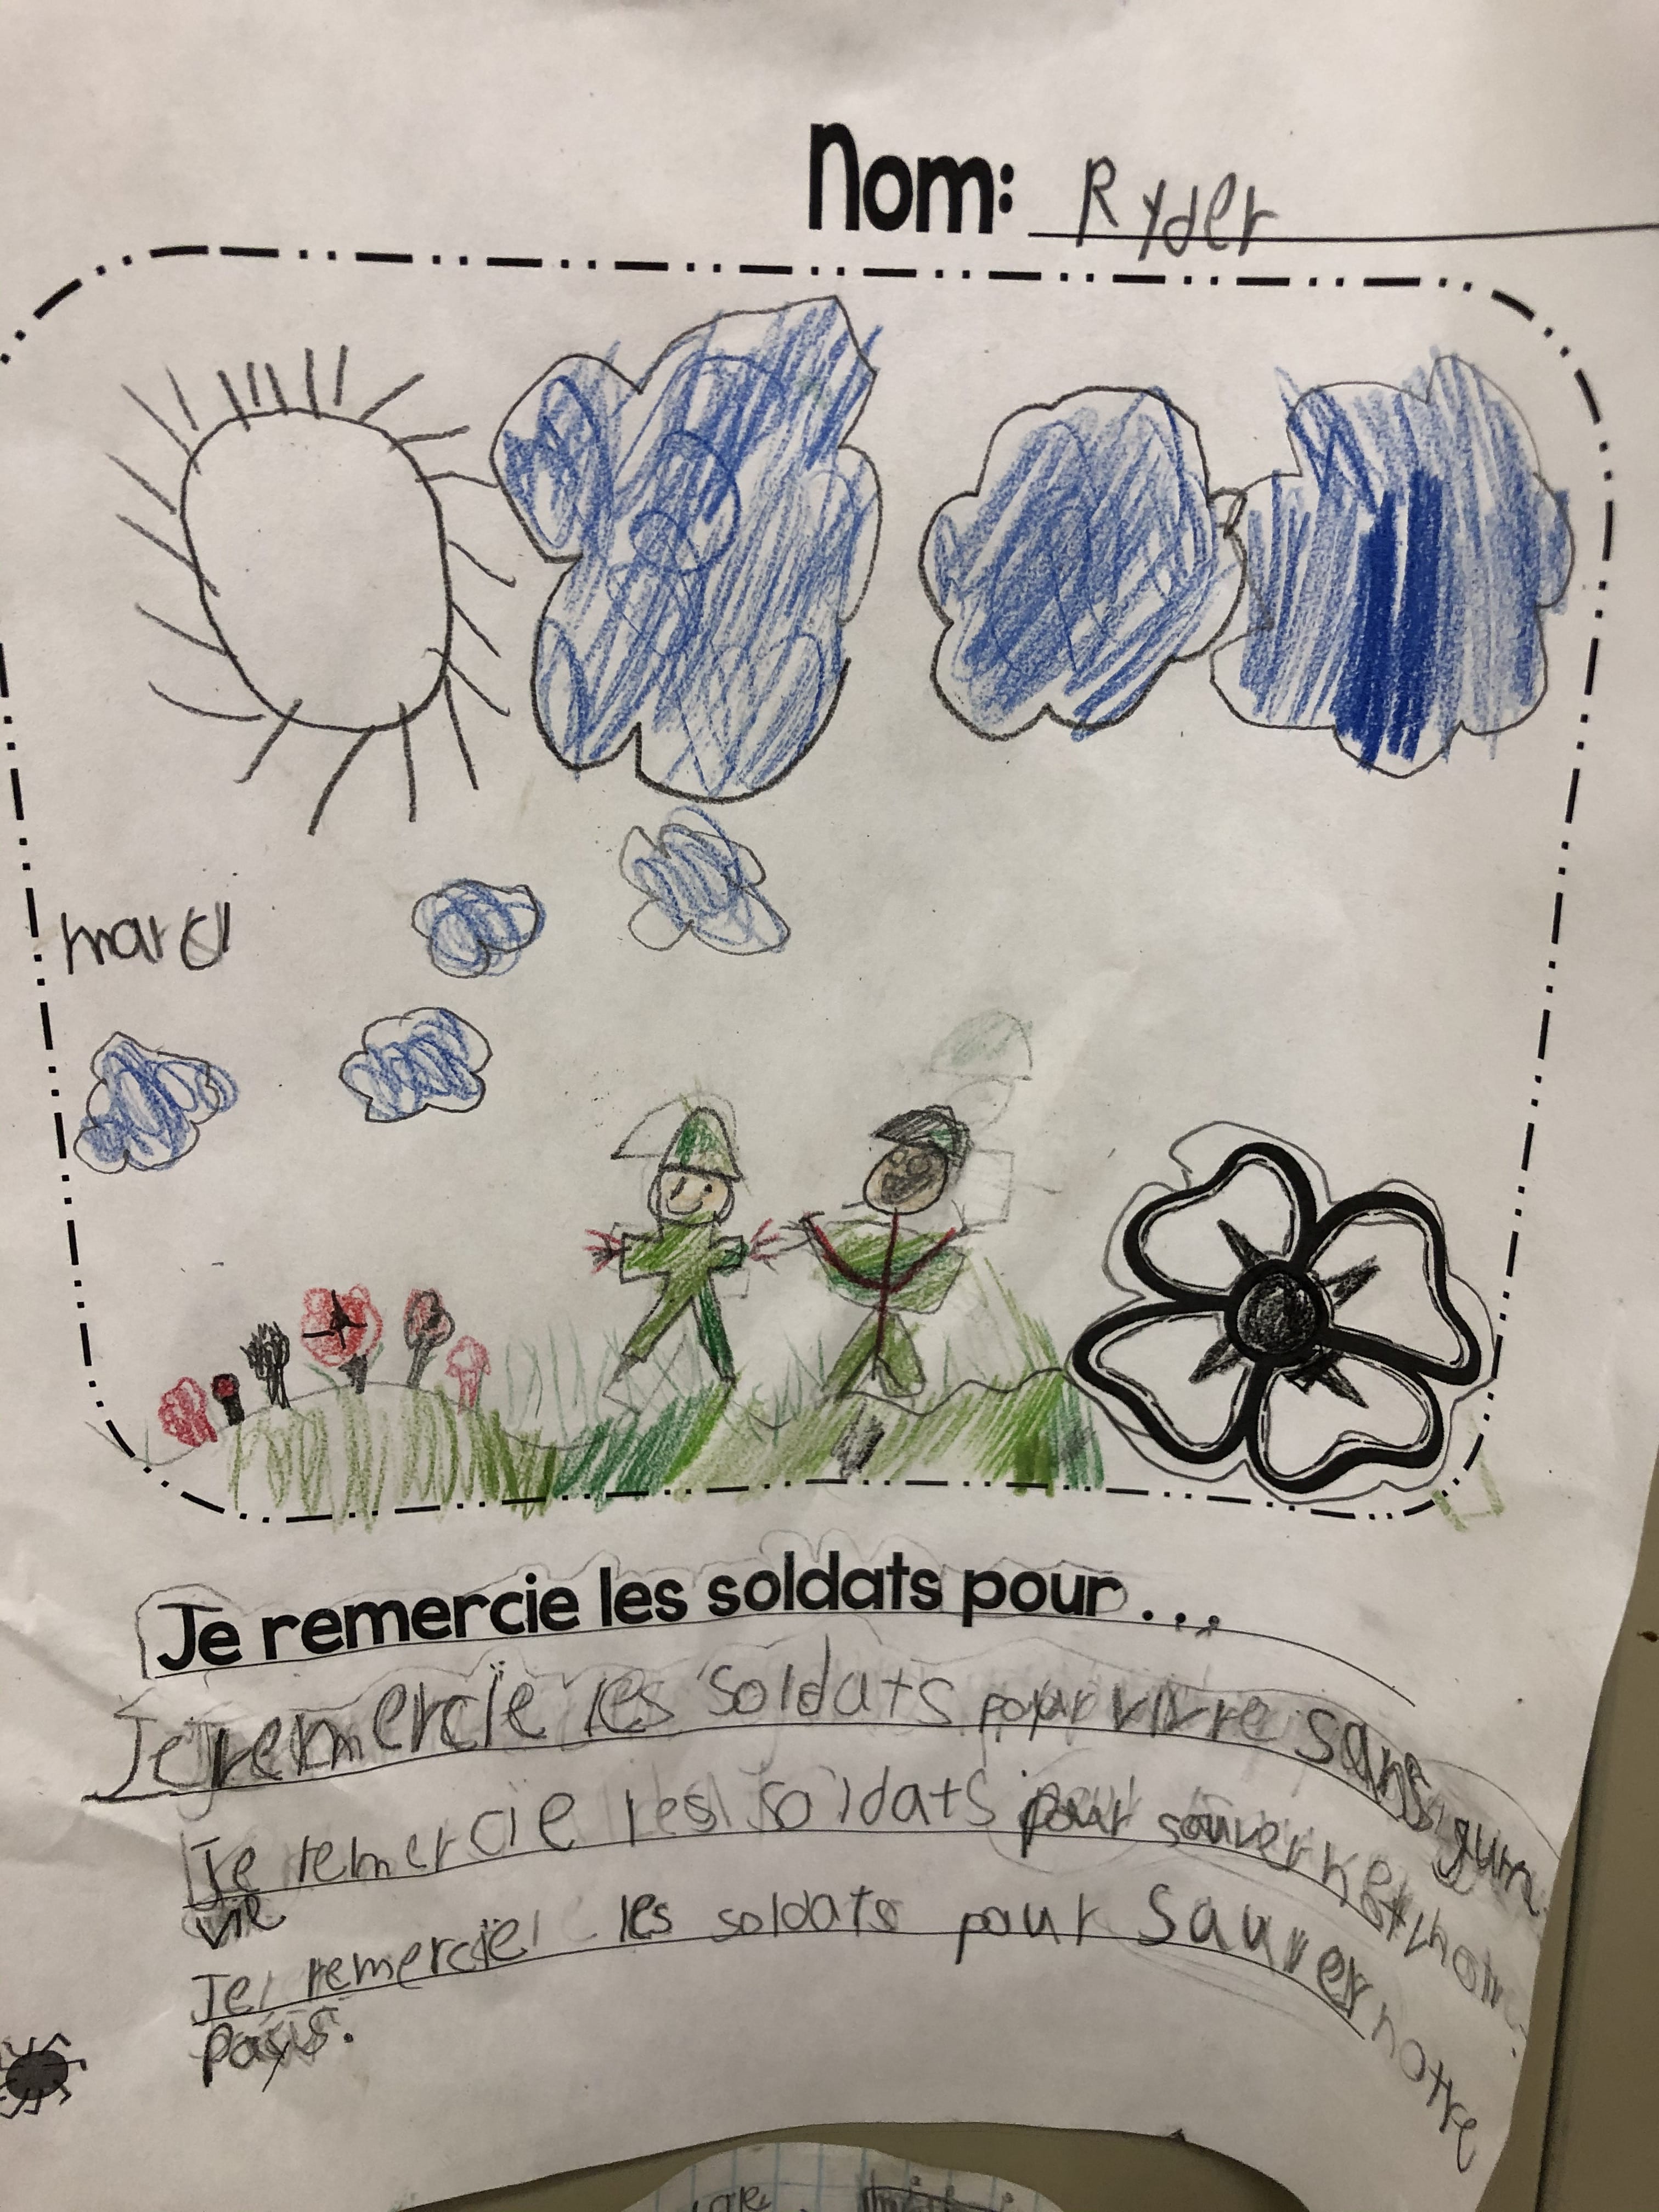 Nom: Ryder
Je remercie les soldats pour...
Je remercie les soldats pour vivre sans
Je remercie les soldats pour sauver
vie
Je remercie les soldats pour sauver notre
pays.